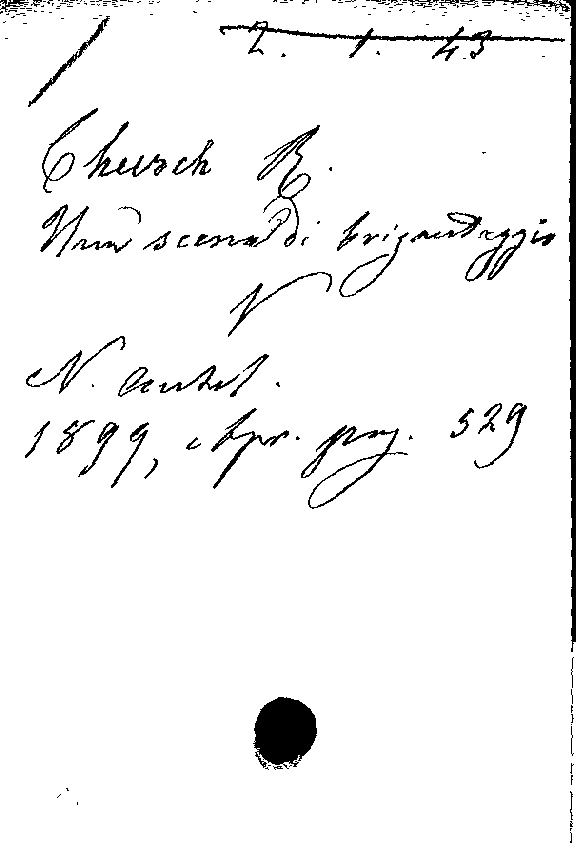 2. 1. 43
Church R.
Una scena di brigantaggio
N. Antol.
1899, Apr. pag. 529